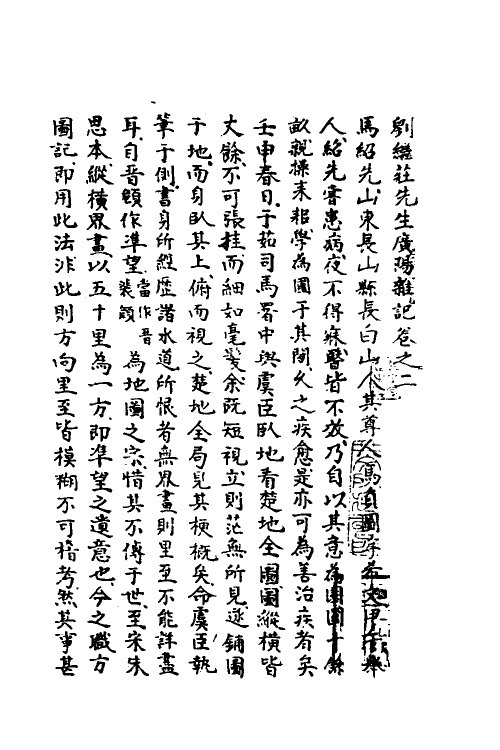 劉繼莊先生廣陽雜記卷之二
馬紹先山東長山縣長白山人其尊人爲舉
人紹先嘗患病夜不得寐醫皆不效乃自以其意爲圃園十餘
畝親操耒耜學爲圃于其間久之疾愈是亦可為善治疾者矣
壬申春日于茹司馬署中與虞臣臥地看楚地全圖圖縱橫皆
大餘不可張挂而細如毫髮余既短視立則茫無所見遂鋪圖
于地而身臥其上俯而視之楚地全局見其梗概矣命虞臣執
筆于側書身所經歷諸水道所恨者無界畫則里至不能詳盡
耳自晉顧作準望當作晉裴頠為地圖之宗惜其不傳于世至宋朱
思本縱橫界畫以五十里為一方即準望之遺意也今之職方
圖記即用此法非此則方向里至皆模糊不可稽考然其事甚